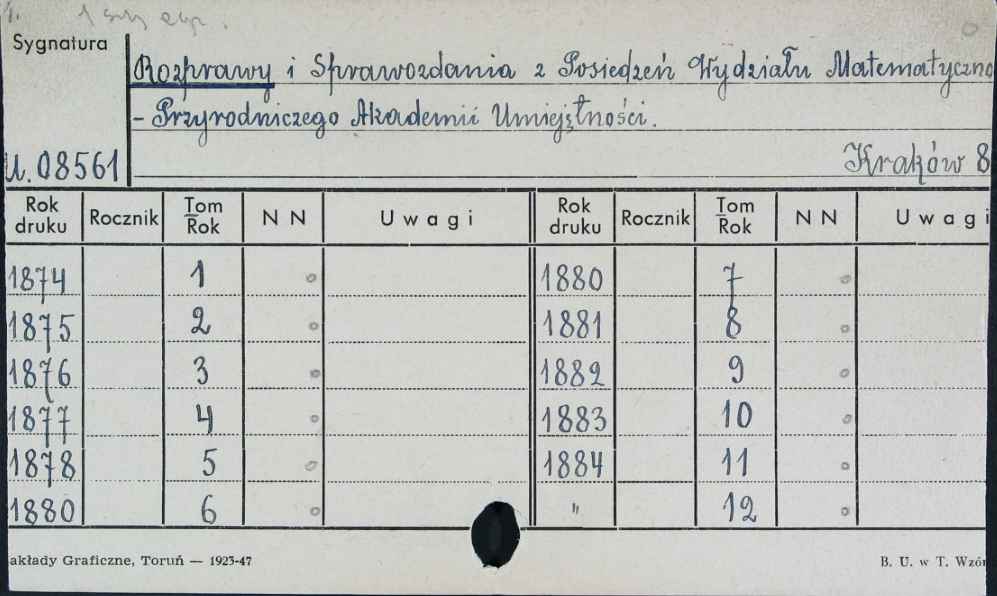 1.
Sygnatura
Rozprawy i Sprawozdania z Posiedzeń Wydziału Matematyczno
- Przyrodniczego Akademii Umiejętności.
U.08561
Kraków 8
Rok druku Rocznik Tom Rok N N Uwagi Rok druku Rocznik Tom Rok N N Uwagi
1874 1 1880 7
1875 2 1881 8
1876 3 1882 9
1877 4 1883 10
1878 5 1884 11
1880 6 " 12
akłady Graficzne, Toruń — 1923-47 B. U. w T. Wzór